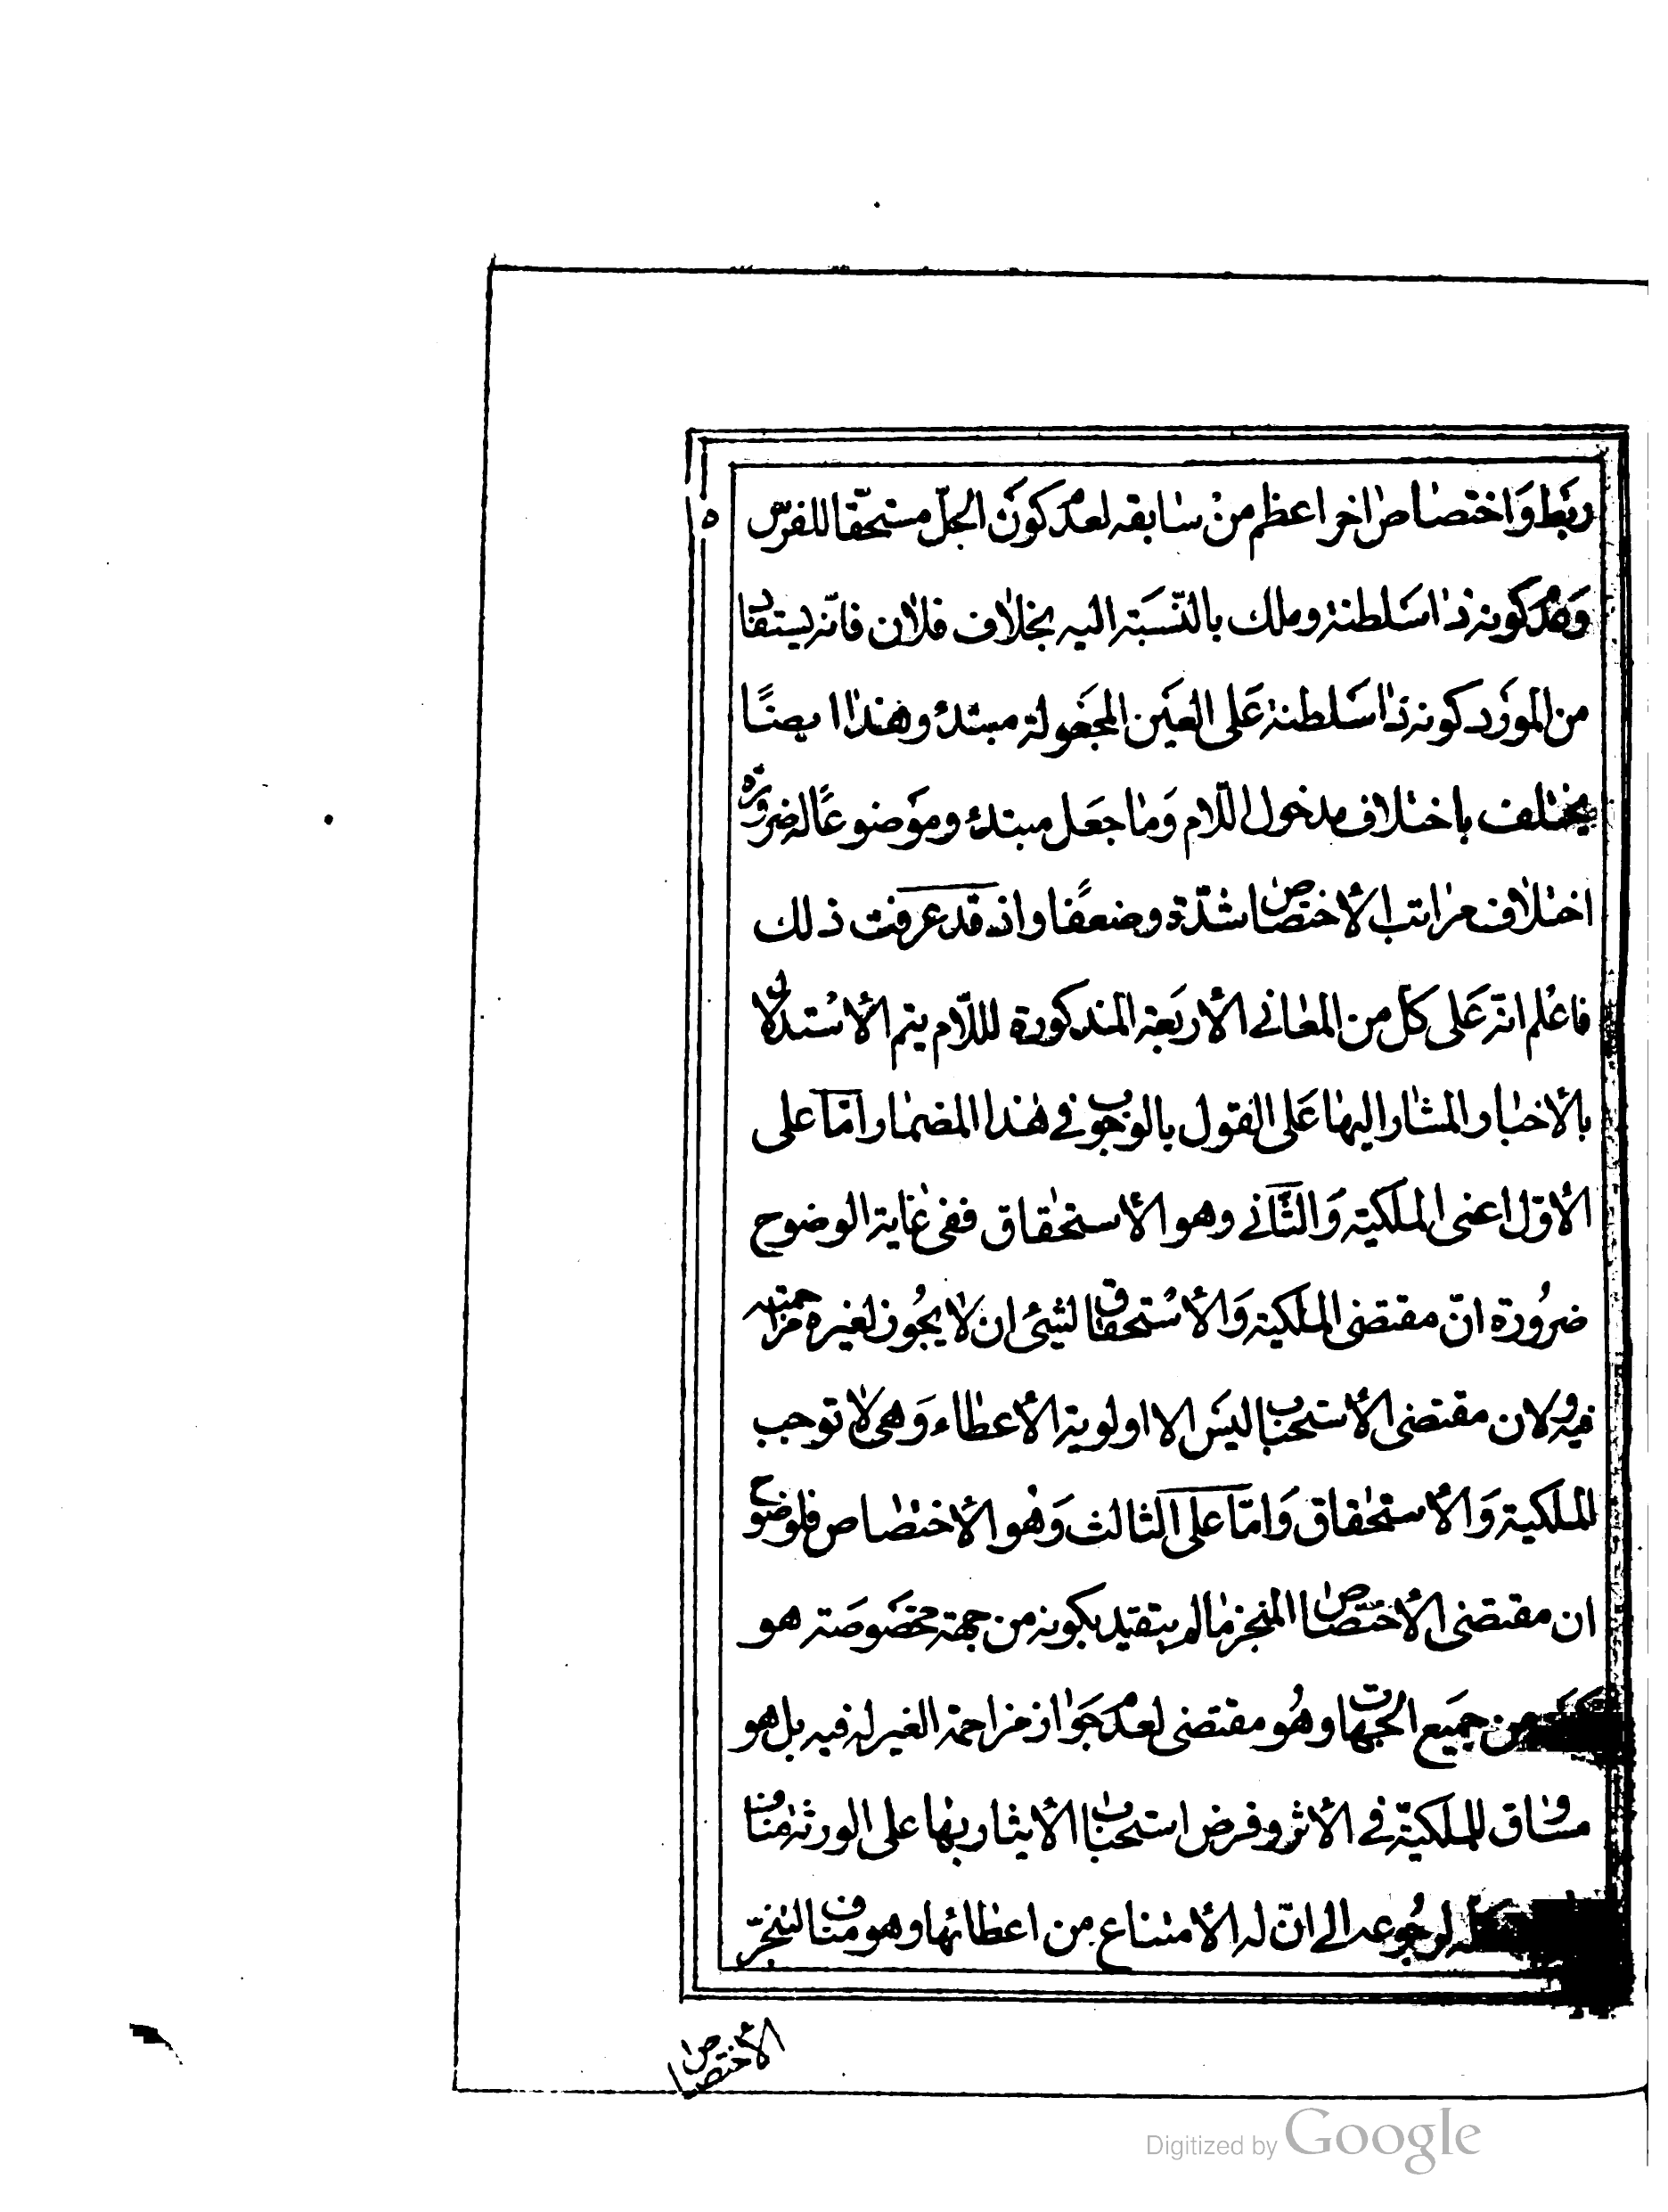 ربط واختصاص اخر اعظم من سابقه لعدم كون الجلّ مستحقا للفرس
وعدم كونه ذا سلطنة وملك بالنّسبة اليه بخلاف فلان فانّه يستفاد
من المورد كونه ذا سلطنة على العين المجعولة مبتدء وهذا ايضًا
يختلف باختلاف مدخول اللّام وما جعل مبتدء وموضوعًا له ضرورة
اختلاف مراتب الأختصاص شدّة وضعفًا واذ قد عرفت ذلك
فاعلم انّه على كل من المعاني الأربعة المذكورة لللّام يتم الأستدلال
بالأخبار المشار اليها على القول بالوجوب في هذا المضمار امّا على
الأوّل اعنى الملكية والثّاني وهو الأستحقاق ففى غاية الوضوح
ضرورة انّ مقتضى الملكية والأستحقاق لشئ ان لا يجوز لغيره مزاحمته
فيه ولان مقتضى الأستحباب ليس الا اولوية الأعطاء وهى لا توجب
الملكية والأستحقاق وامّا على الثالث وهو الأختصاص فلوضوح
ان مقتضى الأختصاص المنجز ما لم يتقيد بكونه من جهة مخصوصة هو
من جميع الجهات وهو مقتضى لعدم جواز مزاحمة الغير له فيه بل هو
مساوق للملكيّة في الأثر وفرض استحباب الأيثار بها على الورثة مناف
لرجوعه الى انّ له الأمتناع من اعطائها وهو مناف لتنجّز
الأختصاص
Digitized by Google